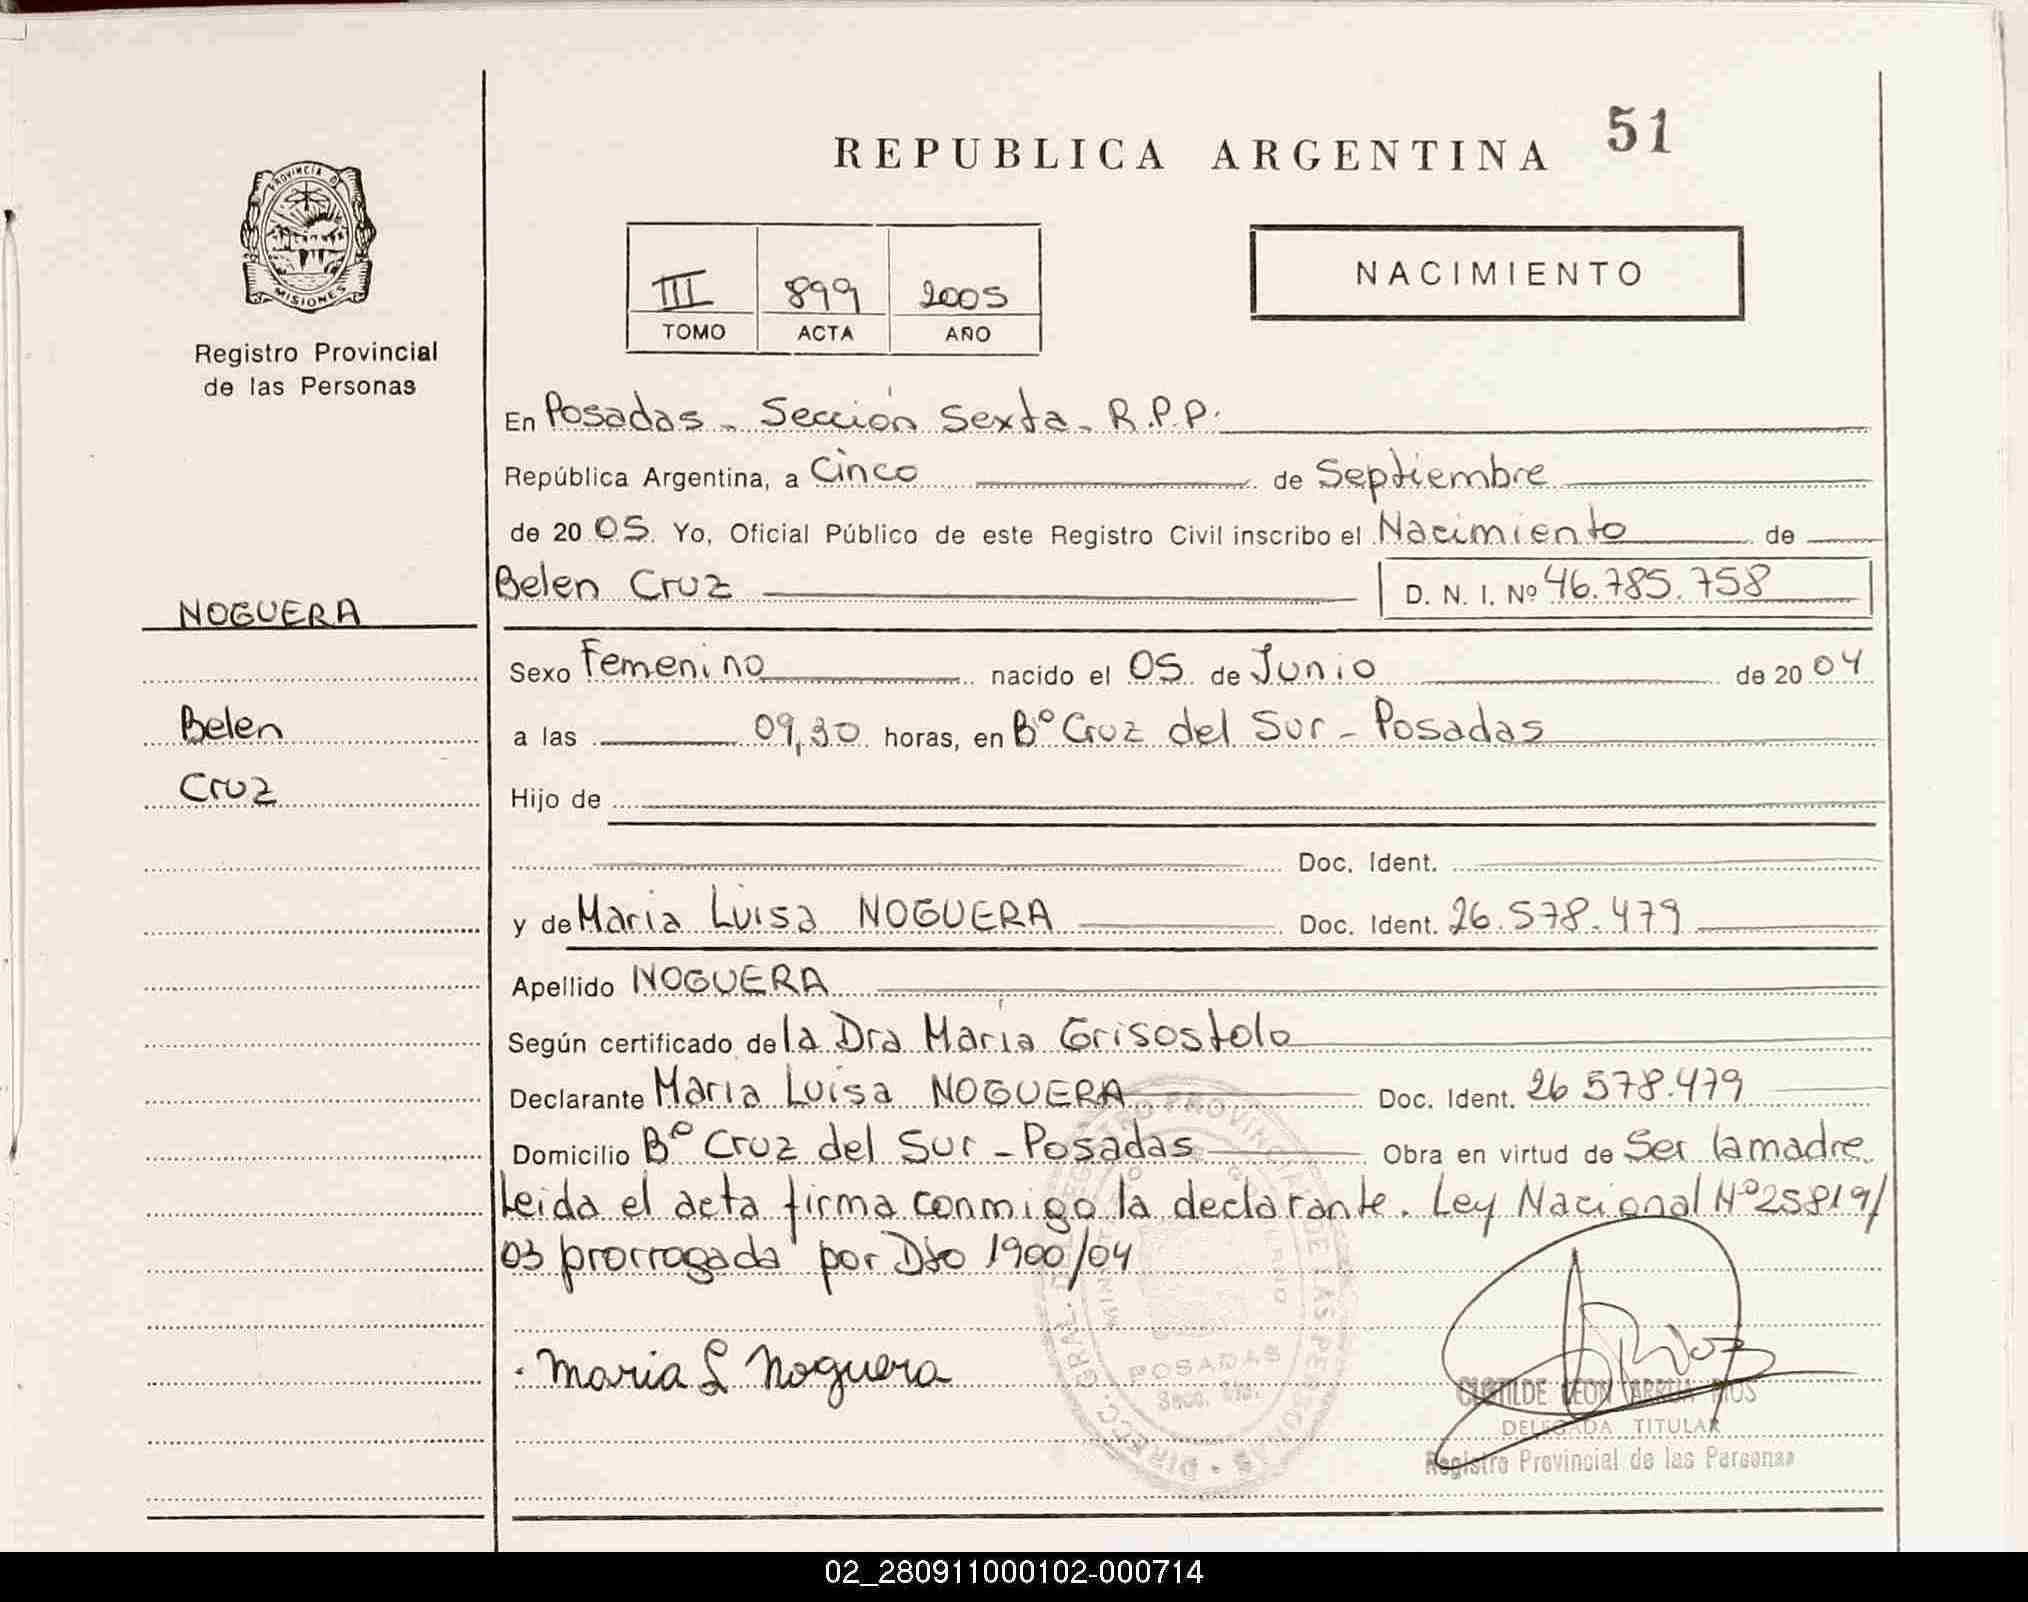 REPUBLICA ARGENTINA 51
PROVINCIA DE
MISIONES
Registro Provincial
de las Personas
III 899 2005
TOMO ACTA AÑO
NACIMIENTO
En Posadas - Sección Sexta - R.P.P.
República Argentina, a Cinco de Septiembre
de 20 05. Yo, Oficial Público de este Registro Civil inscribo el Nacimiento de
Belen Cruz D. N. I. Nº 46.785.758
NOGUERA
Sexo Femenino nacido el 05 de Junio de 20 04
Belen
a las 09,30 horas, en Bº Cruz del Sur - Posadas
Cruz
Hijo de
Doc. Ident.
y de Maria Luisa NOGUERA Doc. Ident. 26.578.479
Apellido NOGUERA
Según certificado de la Dra María Grisostolo
Declarante Maria Luisa NOGUERA Doc. Ident. 26 578.479
Domicilio Bº Cruz del Sur - Posadas Obra en virtud de Ser la madre.
Leida el acta firma conmigo la declarante. Ley Nacional Nº 25819/
03 prorrogada por Dto 1900/04
Maria L Noguera
DIRECC. GRAL. DEL REGISTRO PROVINCIAL DE LAS PERSONAS
POSADAS
CLOTILDE LEON ARRUA RIOS
DELEGADA TITULAR
Registro Provincial de las Personas
02_280911000102-000714